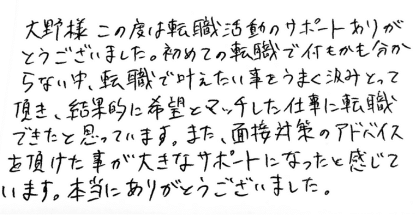 大野様 この度は転職活動のサポートありが
とうございました。初めての転職で何もかも分か
らない中、転職で叶えたい事をうまく汲みとって
頂き、結果的に希望とマッチした仕事に転職
できたと思っています。また、面接対策のアドバイス
を頂けた事が大きなサポートになったと感じて
います。本当にありがとうございました。